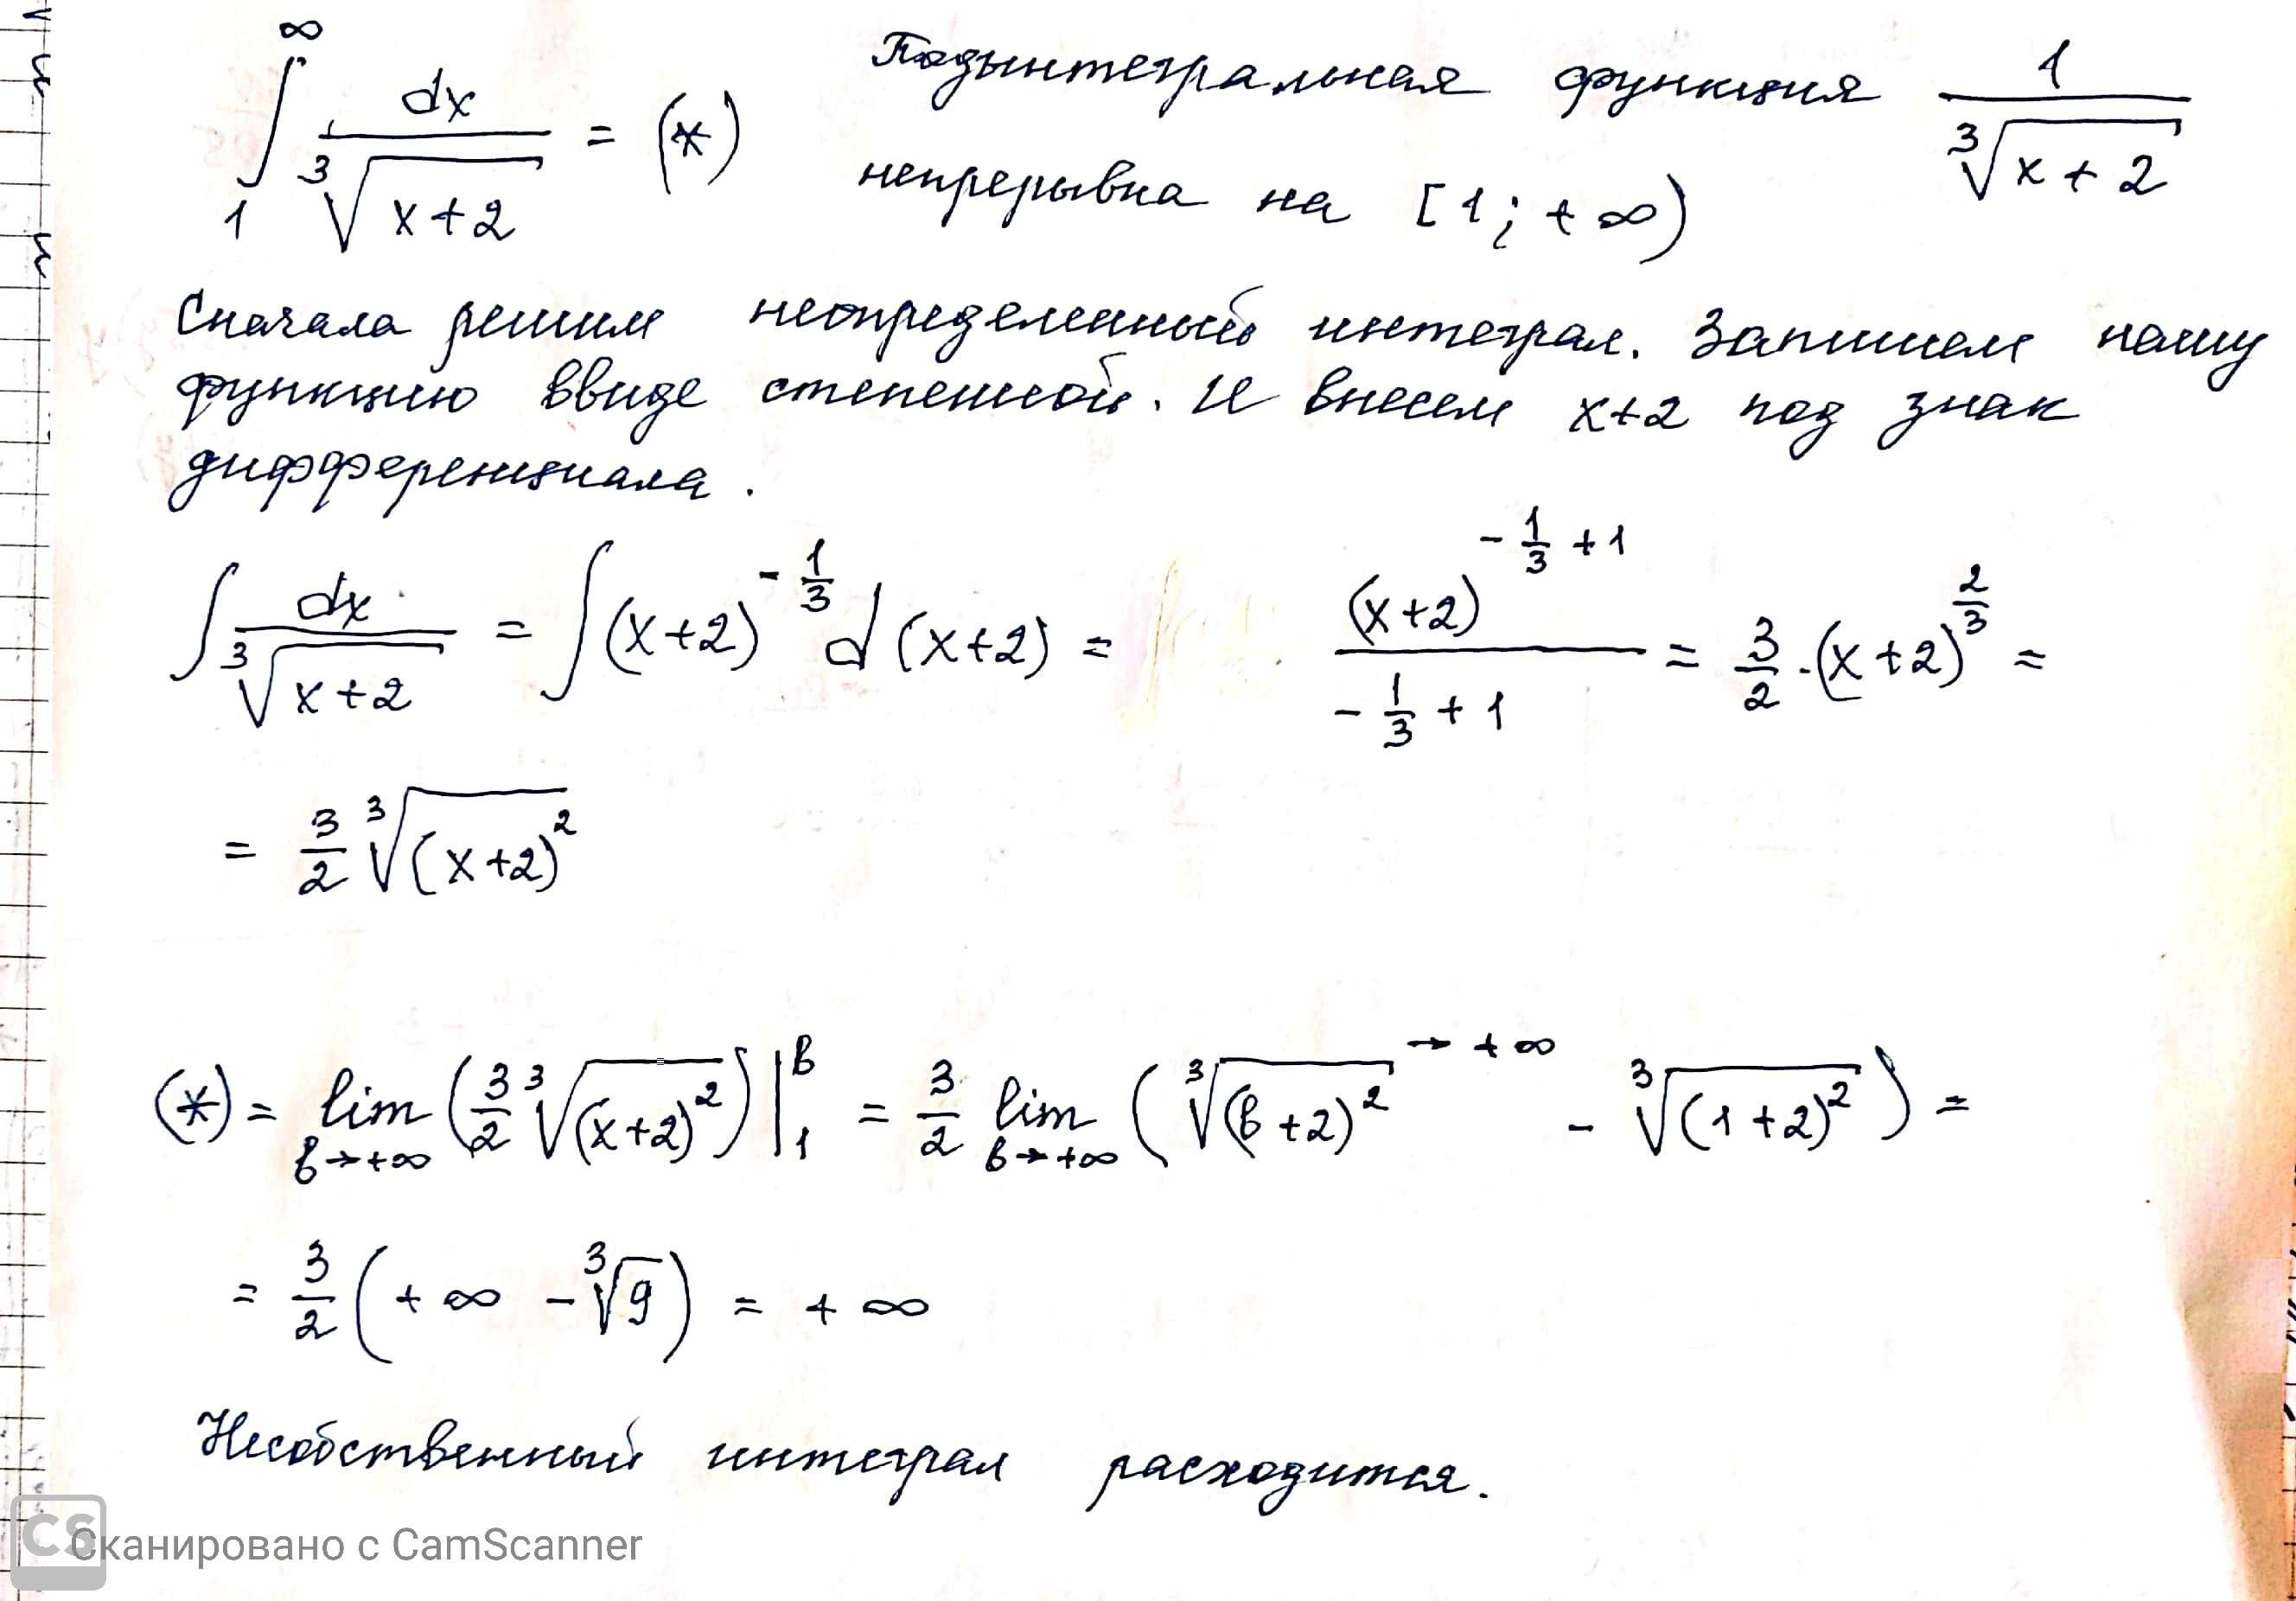 ∫₁^∞ dx/∛(x+2) = (*) Подынтегральная функция 1/∛(x+2)
непрерывна на [1; +∞)
Сначала решим неопределенный интеграл. Запишем нашу
функцию ввиде степенной. И внесем x+2 под знак
дифференциала.
∫ dx/∛(x+2) = ∫(x+2)^(-1/3) d(x+2) = (x+2)^(-1/3+1)/(-1/3+1) = 3/2·(x+2)^(2/3) =
= 3/2 ∛((x+2)²)
(*) = lim b→+∞ (3/2 ∛((x+2)²))|₁^b = 3/2 lim b→+∞ (∛((b+2)²) →+∞ - ∛((1+2)²)) =
= 3/2 (+∞ - ∛9) = +∞
Несобственный интеграл расходится.
CS Сканировано с CamScanner